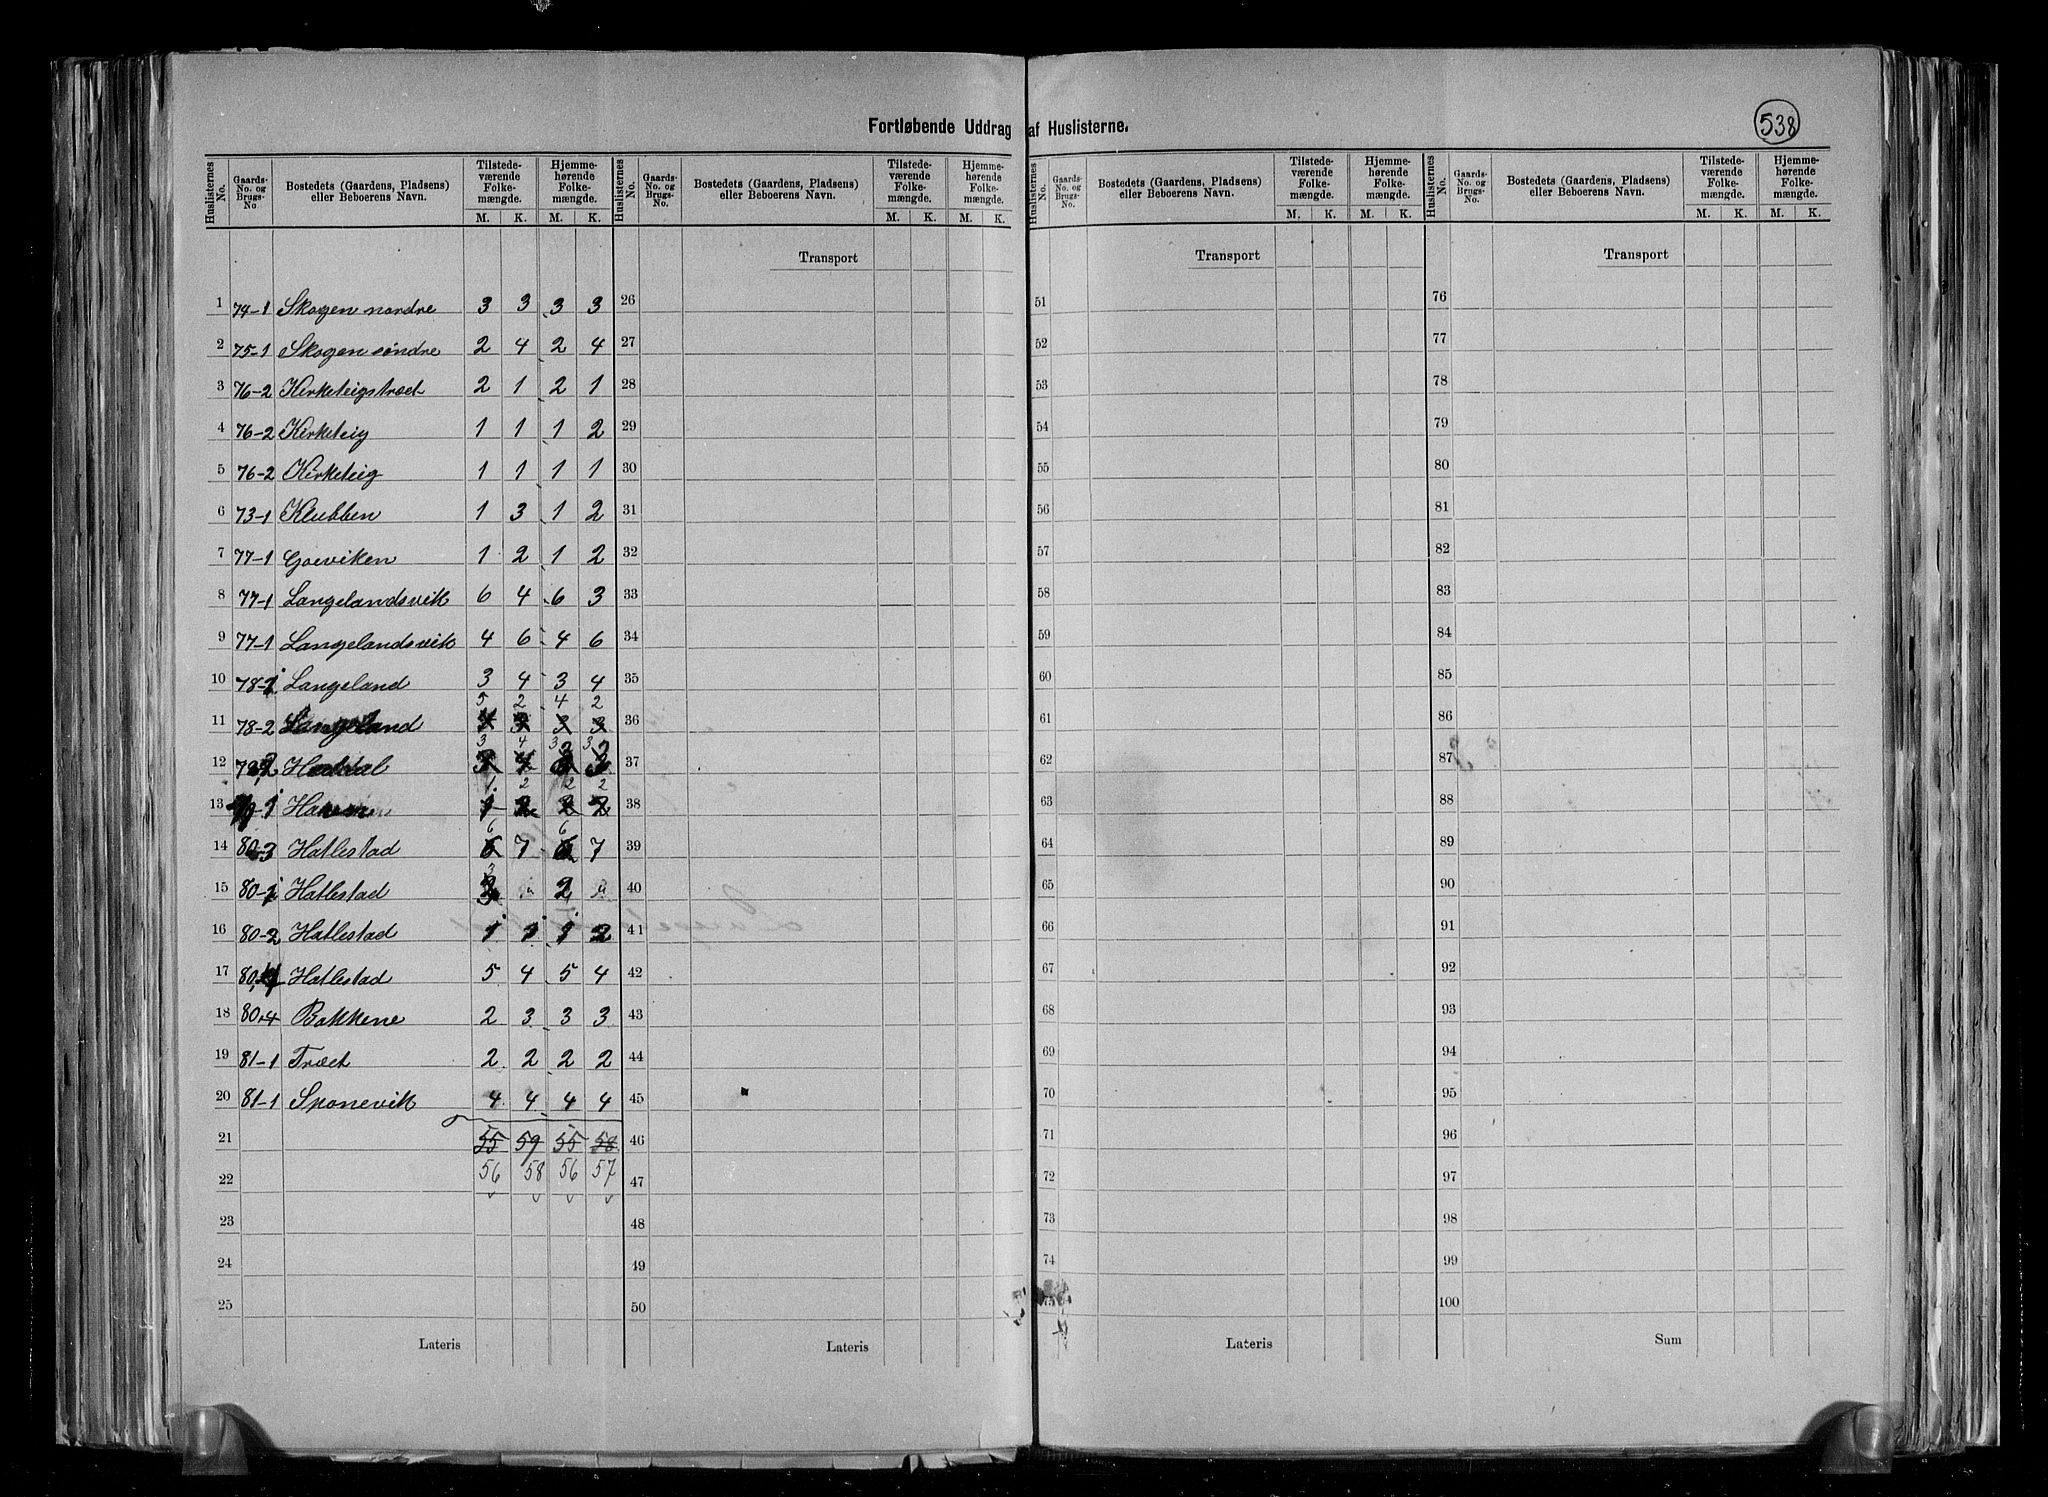 Fortløbende Uddrag af Huslisterne.
538
Huslisternes No. Gaards-No. og Brugs-No. Bostedets (Gaardens, Pladsens) eller Beboerens Navn. Tilstedeværende Folkemængde. M. K. Hjemmehørende Folkemængde. M. K.
Huslisternes No. Gaards-No. og Brugs-No. Bostedets (Gaardens, Pladsens) eller Beboerens Navn. Tilstedeværende Folkemængde. M. K. Hjemmehørende Folkemængde. M. K.
Huslisternes No. Gaards-No. og Brugs-No. Bostedets (Gaardens, Pladsens) eller Beboerens Navn. Tilstedeværende Folkemængde. M. K. Hjemmehørende Folkemængde. M. K.
Huslisternes No. Gaards-No. og Brugs-No. Bostedets (Gaardens, Pladsens) eller Beboerens Navn. Tilstedeværende Folkemængde. M. K. Hjemmehørende Folkemængde. M. K.
Transport Transport Transport
1 74-1 Skogen nordre 3 3 3 3 26 51 76
2 75-1 Skogen søndre 2 4 2 4 27 52 77
3 76-2 Kirketeigstræet 2 1 2 1 28 53 78
4 76-2 Kirketeig 1 1 1 2 29 54 79
5 76-2 Kirketeig 1 1 1 1 30 55 80
6 73-1 Klubben 1 3 1 2 31 56 81
7 77-1 Goeviken 1 2 1 2 32 57 82
8 77-1 Langelandsvik 6 4 6 3 33 58 83
9 77-1 Langelandsvik 4 6 4 6 34 59 84
10 78-1 Langeland 3 4 3 4 35 60 85
5 2 4 2
11 78-2 Langeland 36 61 86
3 4 3 3
12 37 62 87
1 2 2 2
13 38 63 88
6 6
14 80-3 Hatlestad 7 7 39 64 89
15 80-1 Hatlestad 3 2 40 65 90
16 80-2 Hatlestad 1 1 1 2 41 66 91
17 Hatlestad 5 4 5 4 42 67 92
18 80-4 Bakkene 2 3 3 3 43 68 93
19 81-1 Træet 2 2 2 2 44 69 94
20 81-1 Sponevik 4 4 4 4 45 70 95
21 55 59 55 58 46 71 96
22 56 58 56 57 47 72 97
23 48 73 98
24 49 74 99
25 50 75 100
Lateris Lateris Lateris Sum